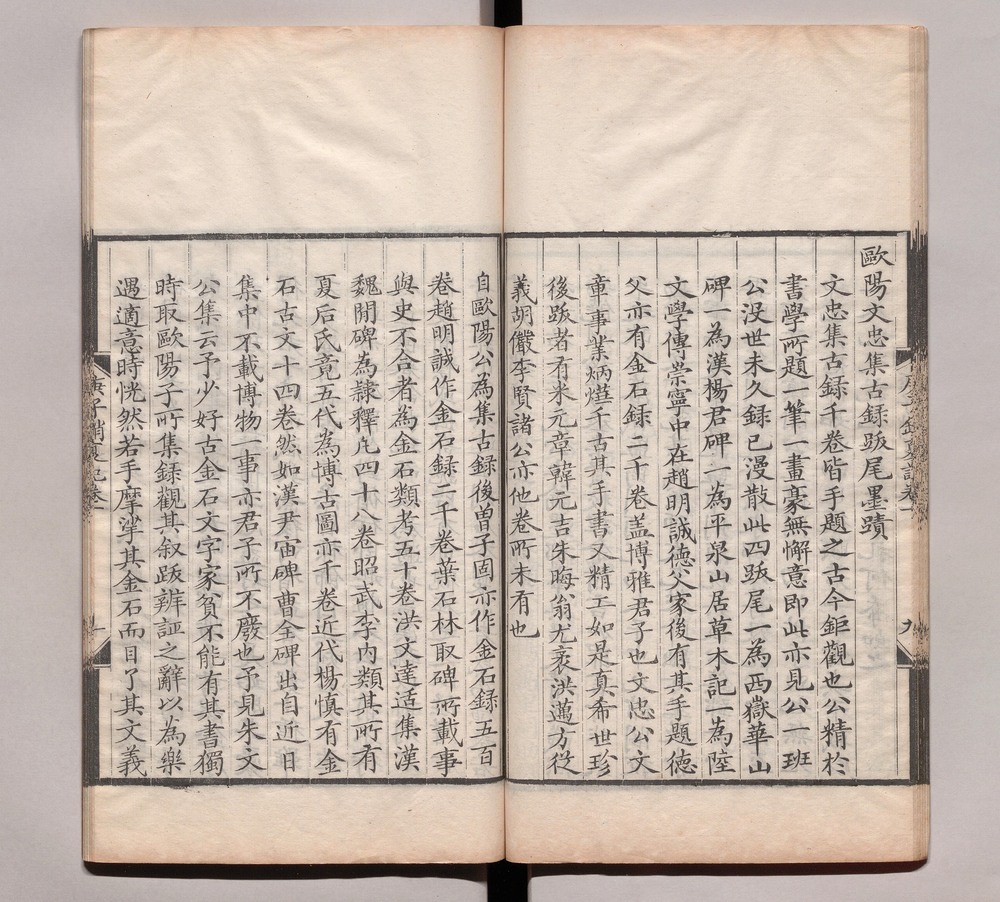 歐陽文忠集古録䟦尾墨蹟
文忠集古録千卷皆手題之古今鉅觀也公精於
書學所題一筆一畫豪無懈意即此亦見公一班
公没世未久録已漫散此四䟦尾一為西嶽華山
碑一為漢楊君碑一為平泉山居草木記一為陸
文學傳崇寧中在趙明誠德父家後有其手題德
父亦有金石録二千卷盖博雅君子也文忠公文
章事業炳燁千古其手書又精工如是真希世珍
後䟦者有米元章韓元吉朱晦翁尤袤洪邁方從
義胡儼李賢諸公亦他卷所未有也
自歐陽公為集古録後曽子固亦作金石録五百
卷趙明誠作金石録二千卷葉石林取碑所載事
與史不合者為金石類考五十卷洪文達适集漢
魏間碑為隸釋凢四十八卷昭武李内類其所有
夏后氏竟五代為博古圖亦千卷近代楊慎有金
石古文十四卷然如漢尹宙碑曹全碑出自近日
集中不載博物一事亦君子所不廢也予見朱文
公集云予少好古金石文字家貧不能有其書獨
時取歐陽子所集録觀其叙䟦辨証之辭以為樂
遇適意時恍然若手摩挲其金石而目了其文義
庚子銷夏記卷一
九